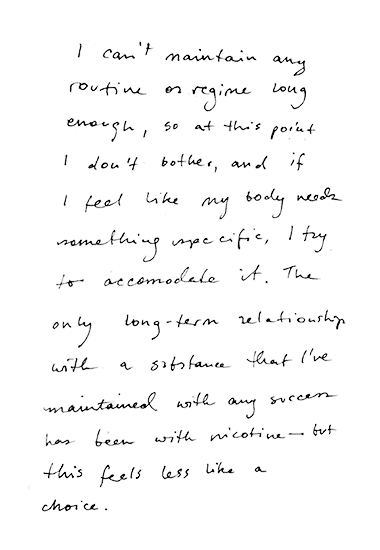 I can't maintain any
routine or regime long
enough, so at this point
I don't bother, and if
I feel like my body needs
something specific, I try
to accomodate it. The
only long-term relationship
with a substance that I've
maintained with any success
has been with nicotine — but
this feels less like a
choice.